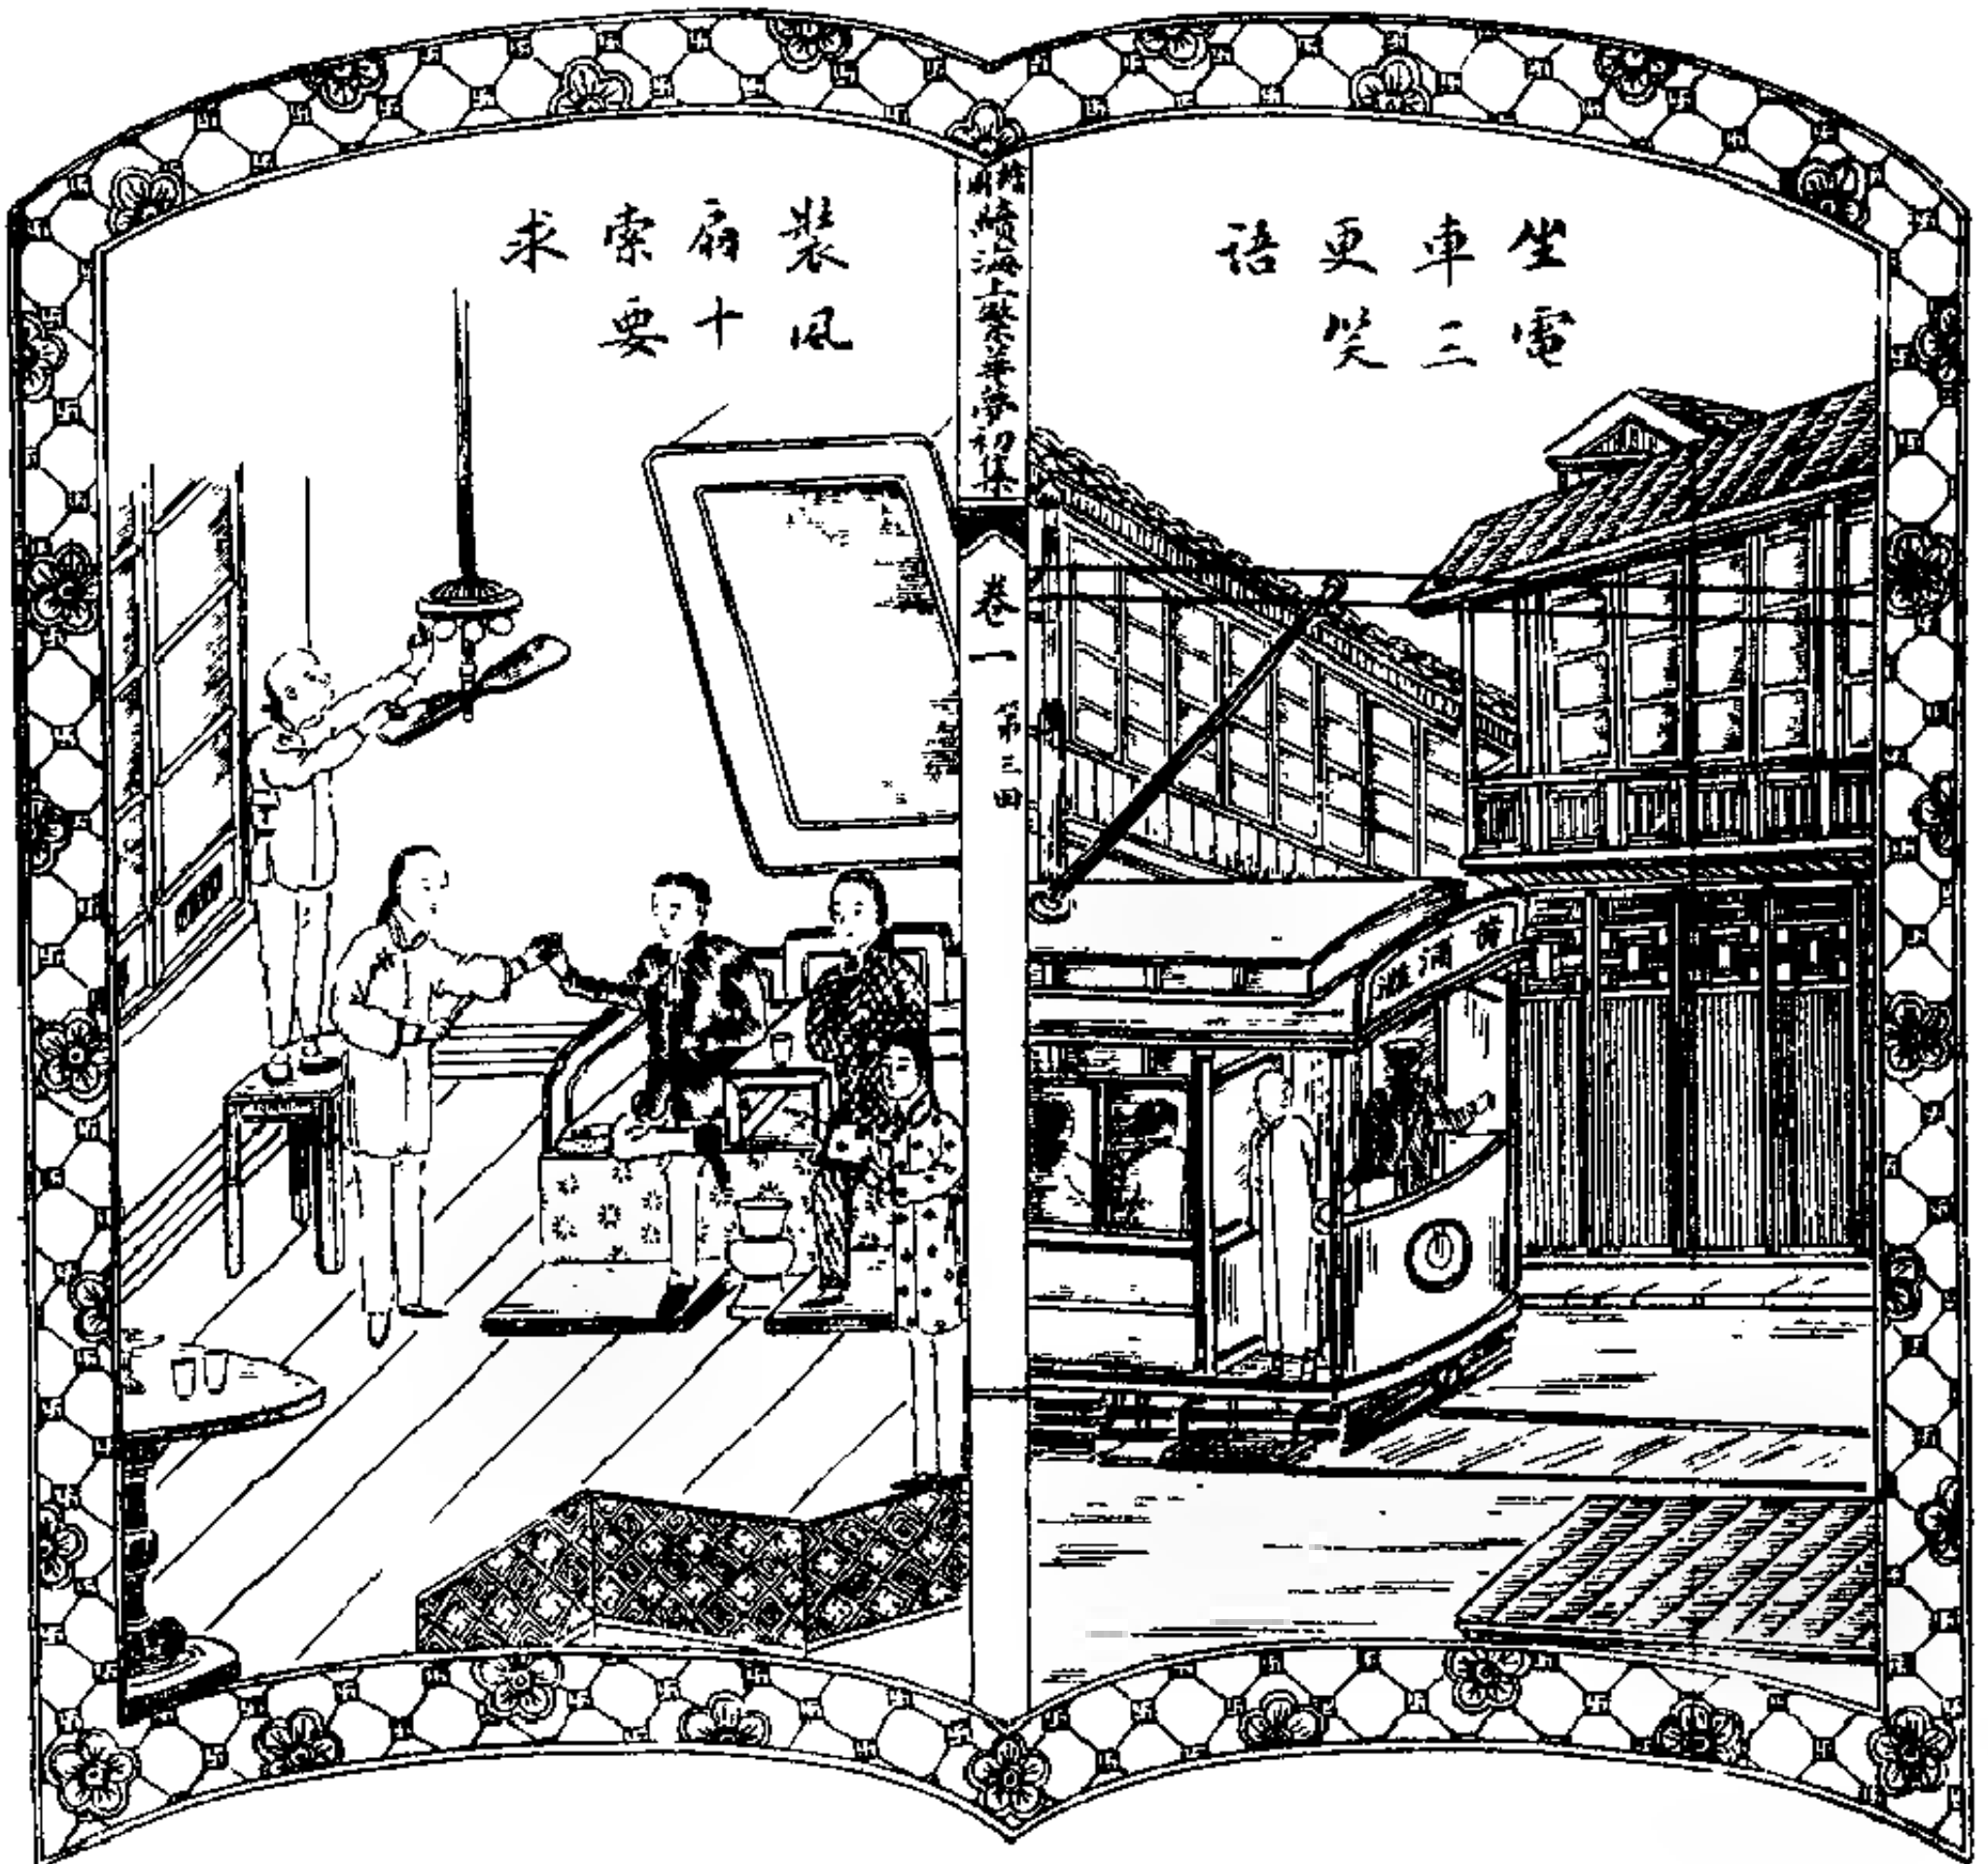 坐電車三更笑語
繪圖續海上繁華夢初集
卷一
第三回
裝風扇十索要求